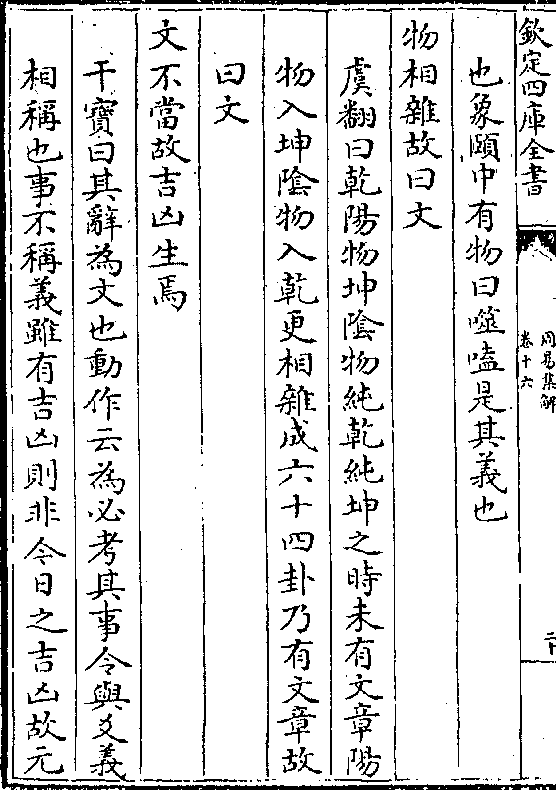 欽定四庫全書
周易集解
卷十六
二十
也象頤中有物曰噬嗑是其義也
物相雜故曰文
虞翻曰乾陽物坤隂物純乾純坤之時未有文章陽
物入坤隂物入乾更相雜成六十四卦乃有文章故
曰文
文不當故吉凶生焉
干寶曰其辭為文也動作云為必考其事令與爻義
相稱也事不稱義雖有吉凶則非今日之吉凶故元